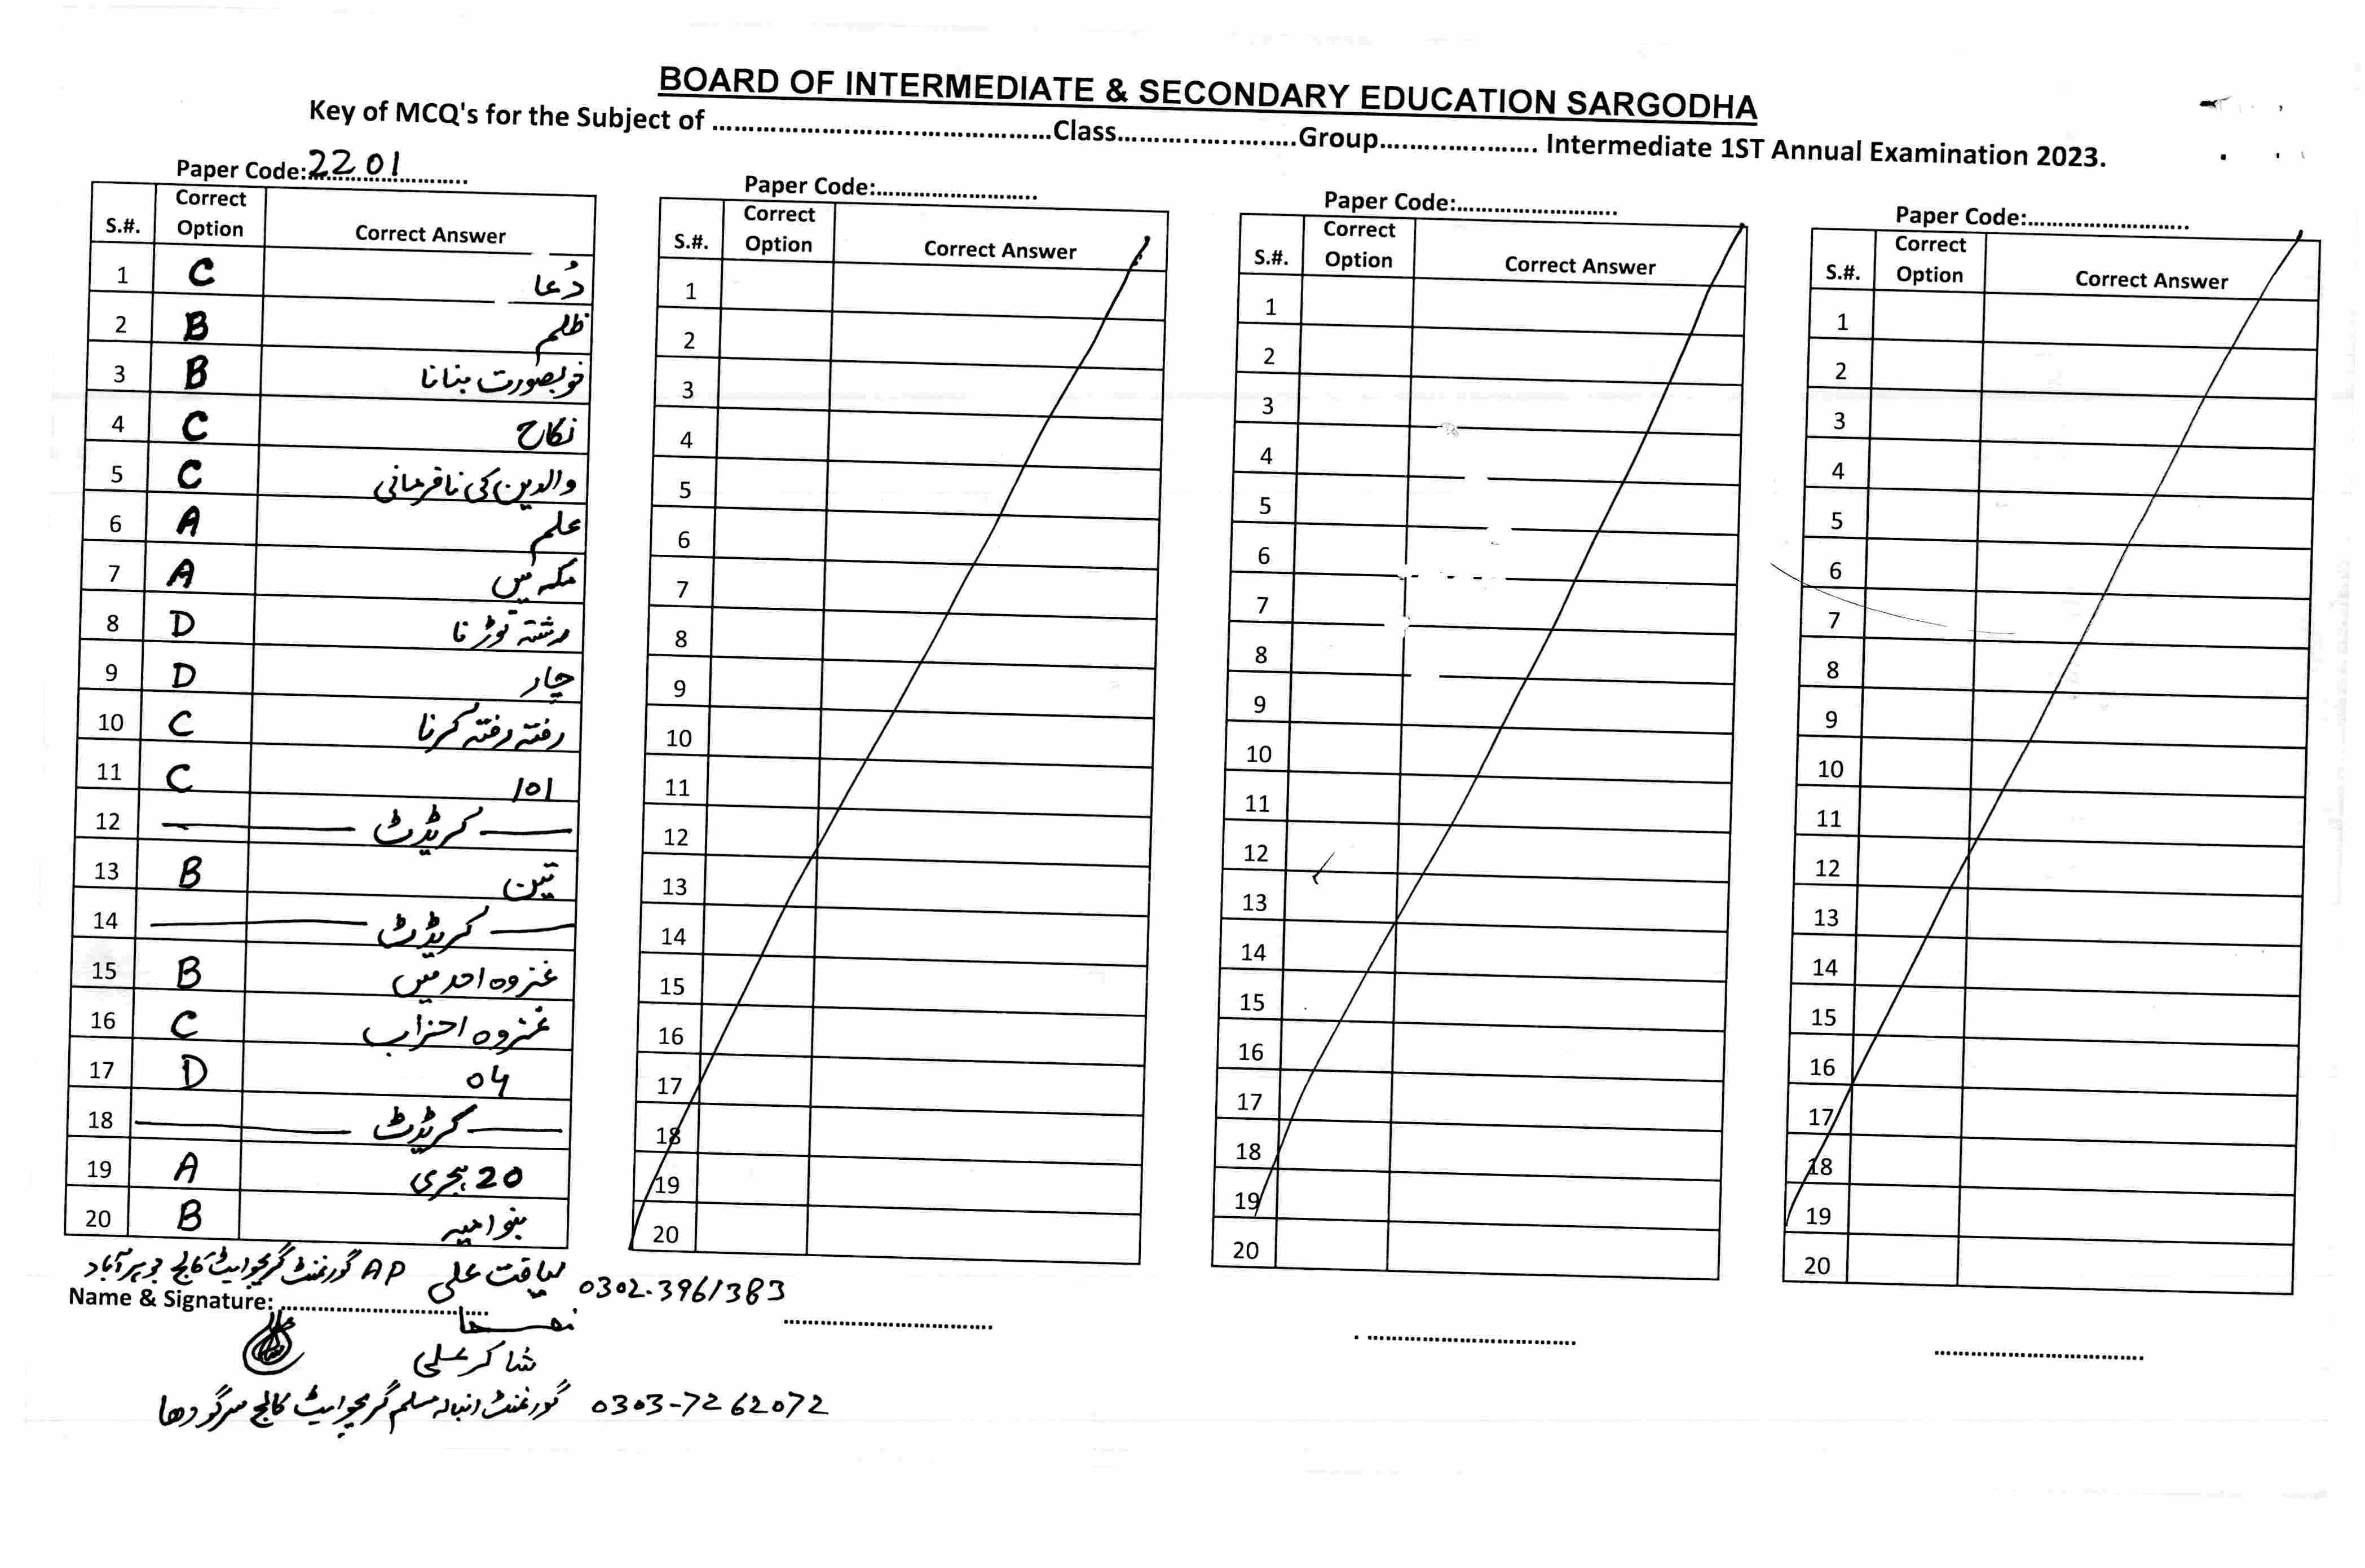 BOARD OF INTERMEDIATE & SECONDARY EDUCATION SARGODHA
Key of MCQ's for the Subject of ........................................Class.....................Group................... Intermediate 1ST Annual Examination 2023.
Paper Code: 2201
S.#. Correct Option Correct Answer
1 C دُعا
2 B ظلم
3 B خوبصورت بنانا
4 C نکاح
5 C والدین کی نافرمانی
6 A علم
7 A مکہ میں
8 D رشتہ توڑنا
9 D چار
10 C رفتہ رفتہ کرنا
11 C 101
12 کریڈٹ
13 B تین
14 کریڈٹ
15 B غزوہ احد میں
16 C غزوہ احزاب
17 D 04
18 کریڈٹ
19 A 20 ہجری
20 B بنو امیہ
Paper Code:...........................
S.#. Correct Option Correct Answer
1
2
3
4
5
6
7
8
9
10
11
12
13
14
15
16
17
18
19
20
Paper Code:...........................
S.#. Correct Option Correct Answer
1
2
3
4
5
6
7
8
9
10
11
12
13
14
15
16
17
18
19
20
Paper Code:...........................
S.#. Correct Option Correct Answer
1
2
3
4
5
6
7
8
9
10
11
12
13
14
15
16
17
18
19
20
لیاقت علی AP گورنمنٹ گریجوایٹ کالج جوہرآباد 0302-3961383
Name & Signature:...................................
شاکر علی
گورنمنٹ انبالہ مسلم گریجوایٹ کالج سرگودھا 0303-7262072